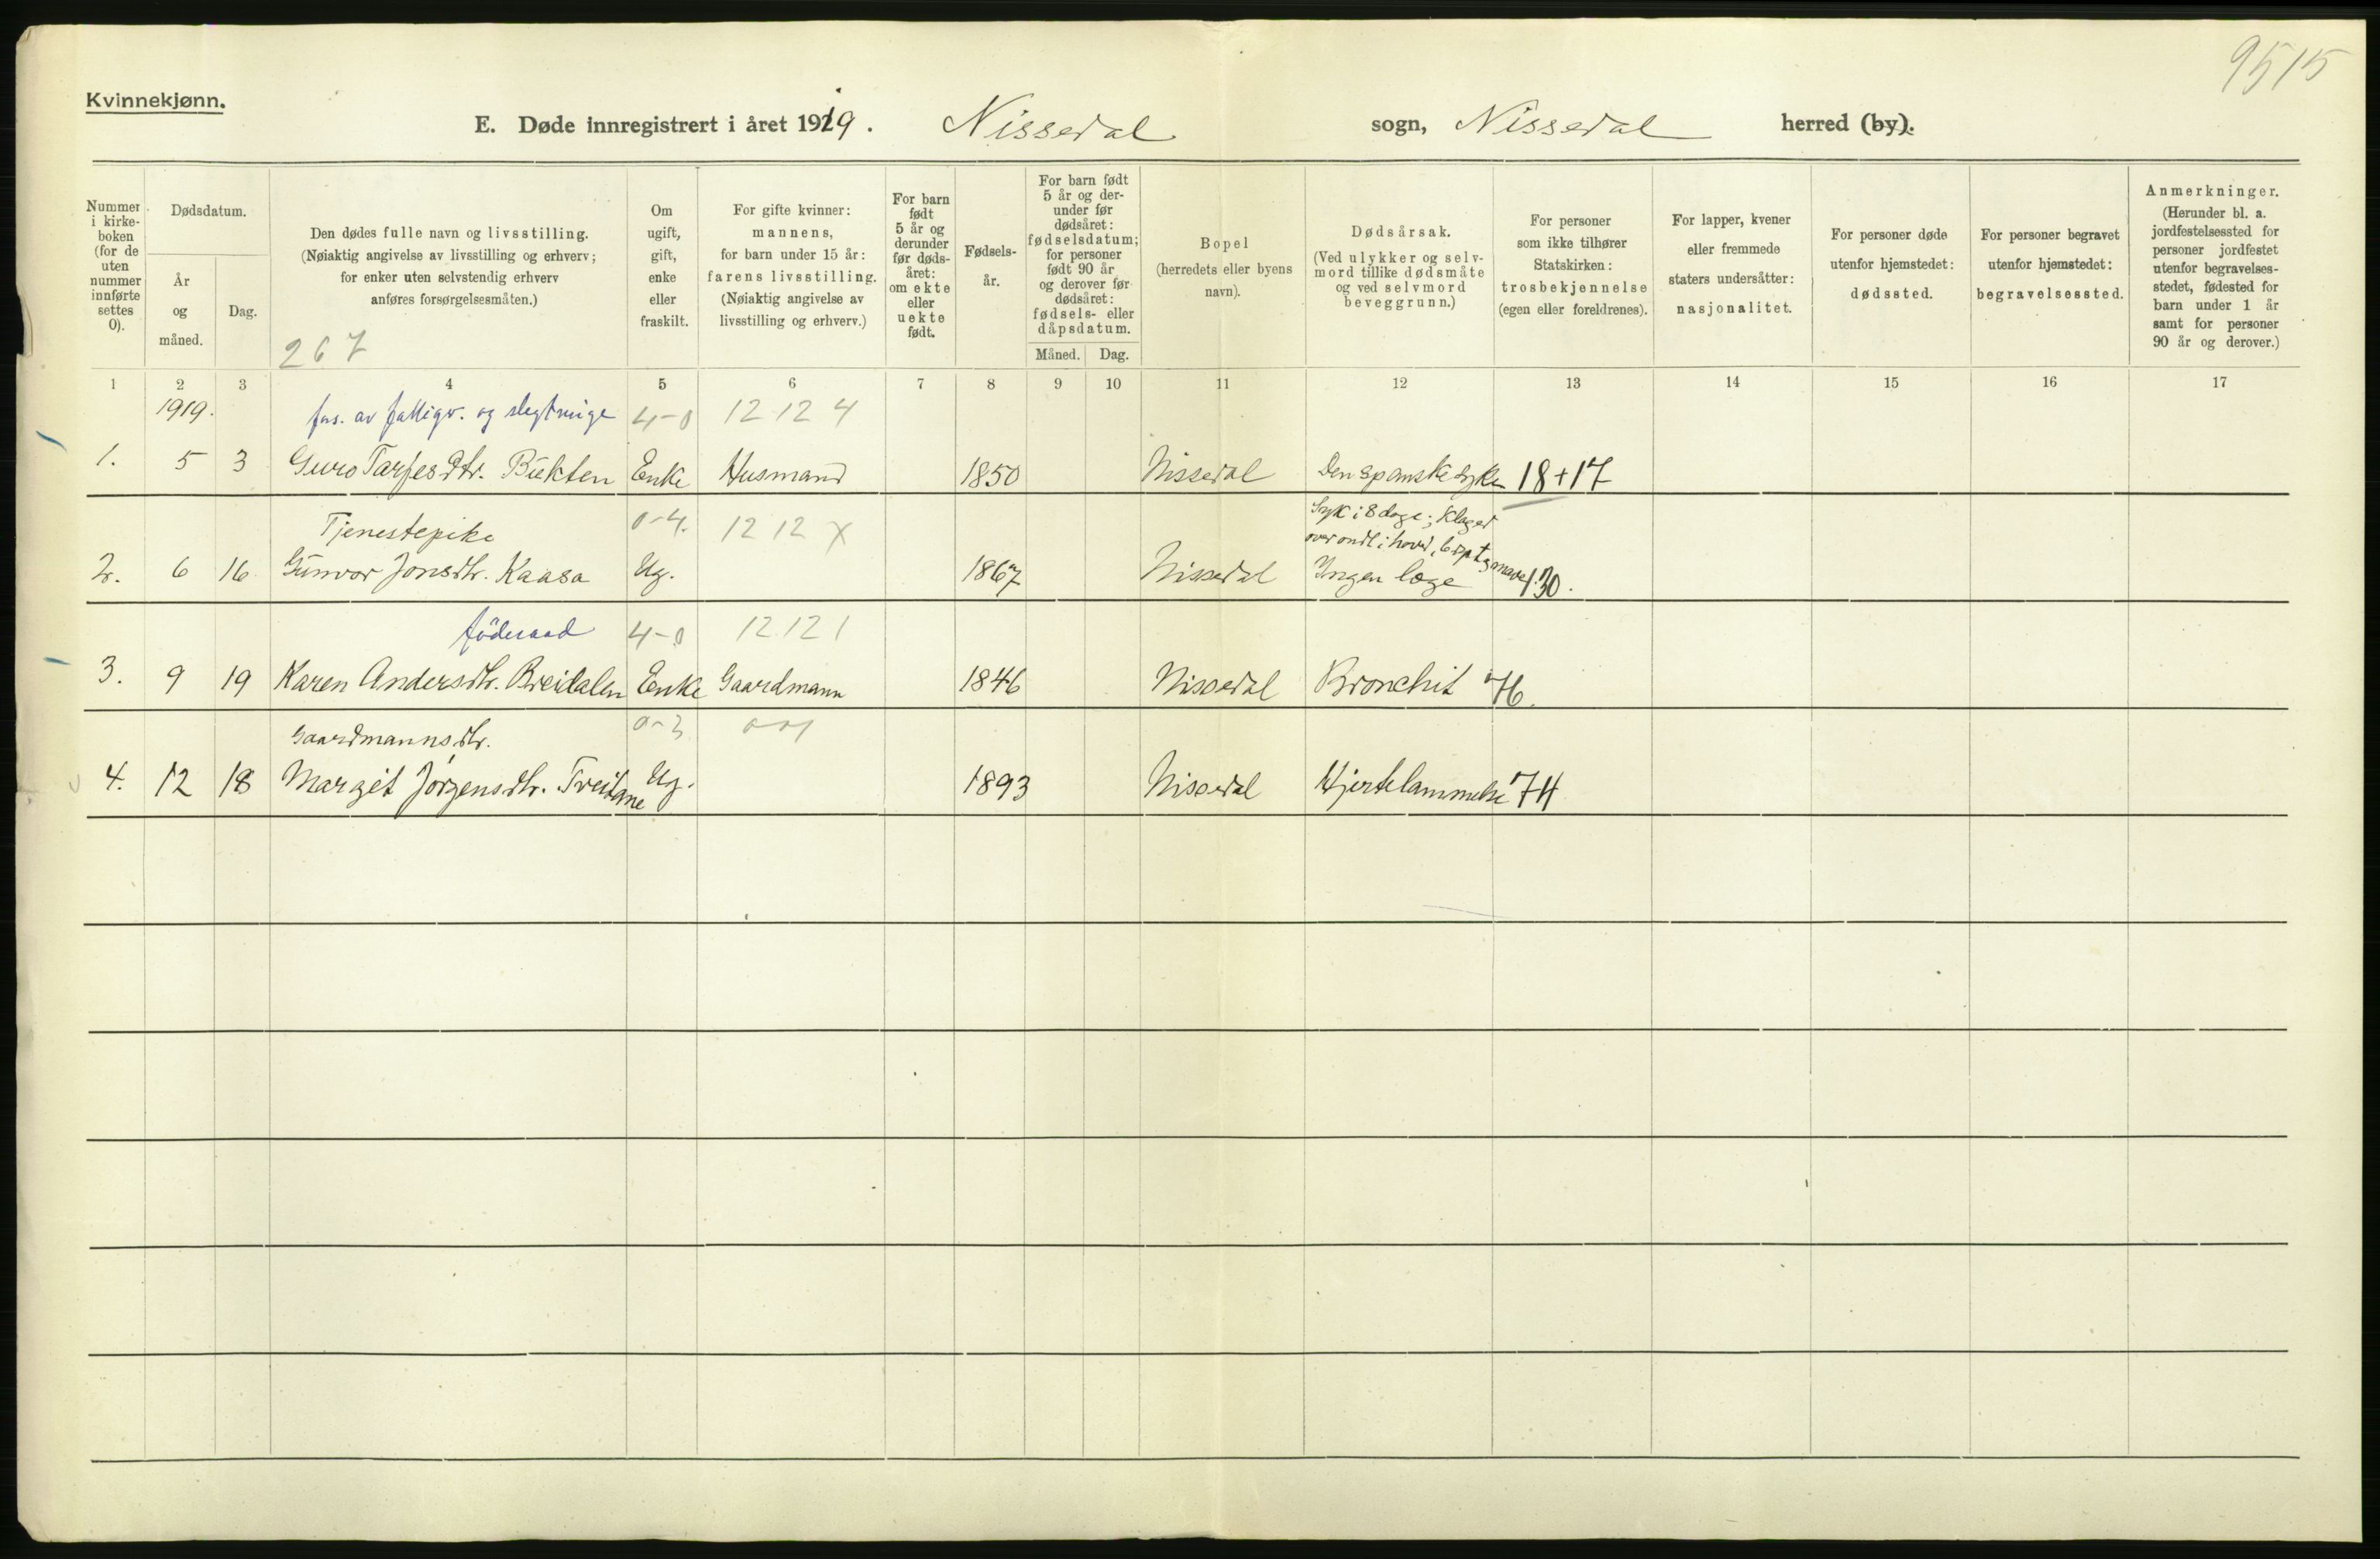 9515
Kvinnekjønn.
E. Døde innregistrert i året 1919. Nissedal sogn, Nissedal herred (by).
Nummer i kirke-boken (for de uten nummer innførte settes 0).
Dødsdatum.
År og måned.
Dag.
Den dødes fulle navn og livsstilling. (Nøiaktig angivelse av livsstilling og erhverv; for enker uten selvstendig erhverv anføres forsørgelsesmåten.)
267
Om ugift, gift, enke eller fraskilt.
For gifte kvinner: mannens, for barn under 15 år: farens livsstilling. (Nøiaktig angivelse av livsstilling og erhverv.)
For barn født 5 år og derunder før døds-året: om ekte eller uekte født.
Fødsels-år.
For barn født 5 år og der-under før dødsåret: fødselsdatum; for personer født 90 år og derover før dødsåret: fødsels- eller dåpsdatum.
Måned. Dag.
Bopel (herredets eller byens navn).
Dødsårsak. (Ved ulykker og selv-mord tillike dødsmåte og ved selvmord beveggrunn.)
For personer som ikke tilhører Statskirken: trosbekjennelse (egen eller foreldrenes).
For lapper, kvener eller fremmede staters undersåtter: nasjonalitet.
For personer døde utenfor hjemstedet: dødssted.
For personer begravet utenfor hjemstedet: begravelsessted.
Anmerkninger. (Herunder bl. a. jordfestelsessted for personer jordfestet utenfor begravelses-stedet, fødested for barn under 1 år samt for personer 90 år og derover.)
1 2 3 4 5 6 7 8 9 10 11 12 13 14 15 16 17
1919. fors. av fattigv. og slegtninge 4-0 12 12 4
1. 5 3 Guro Tarjesdtr. Bukten Enke Husmand 1850 Nissedal Den spanske syke 18+17
Tjenestepike 0-4. 12 12 X Syk i 8 dage; klaged
over ondt i hoved, bryst og mave
2. 6 16 Gunvor Jonsdtr. Kaasa Ug. 1867 Nissedal Ingen læge 130.
føderaad 4-0 12 12 1
3. 9 19 Karen Andersdtr. Breidalen Enke Gaardmann 1846 Nissedal Bronchit 46.
Gaardmannsdtr. 0-3
4. 12 18 Margit Jørgensdtr. Treitane Ug. 1893 Nissedal Hjertelammelse 74